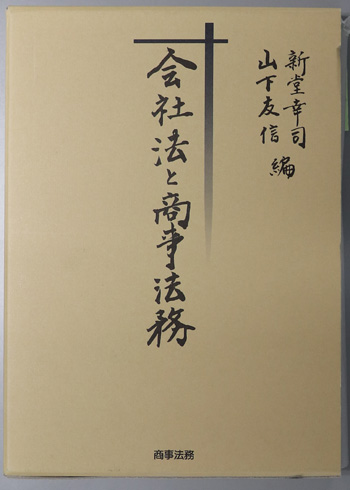 新堂幸司
山下友信 編
会社法と商事法務
商事法務